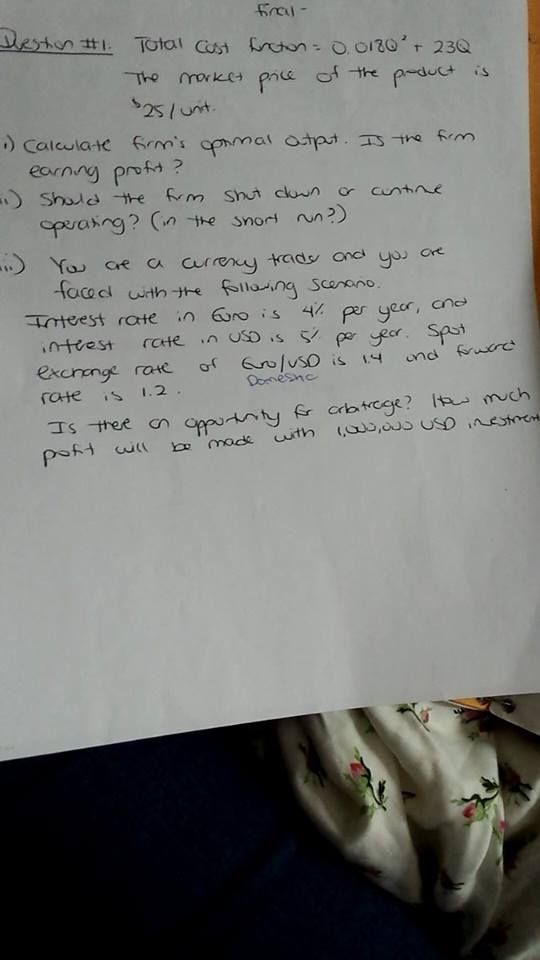 Final -
Question #1. Total Cost function = 0.018Q² + 23Q
The market price of the product is
$25/unit.
i) Calculate firm's optimal output. Is the firm
earning profit?
ii) Should the firm shut down or continue
operating? (in the short run?)
iii) You are a currency trader and you are
faced with the following scenario.
Interest rate in Euro is 4% per year, and
interest rate in USD is 5% per year. Spot
exchange rate of Euro/USD is 1.4 and forward
Domestic
rate is 1.2.
Is there an opportunity for arbitrage? How much
profit will be made with 1,000,000 USD investment